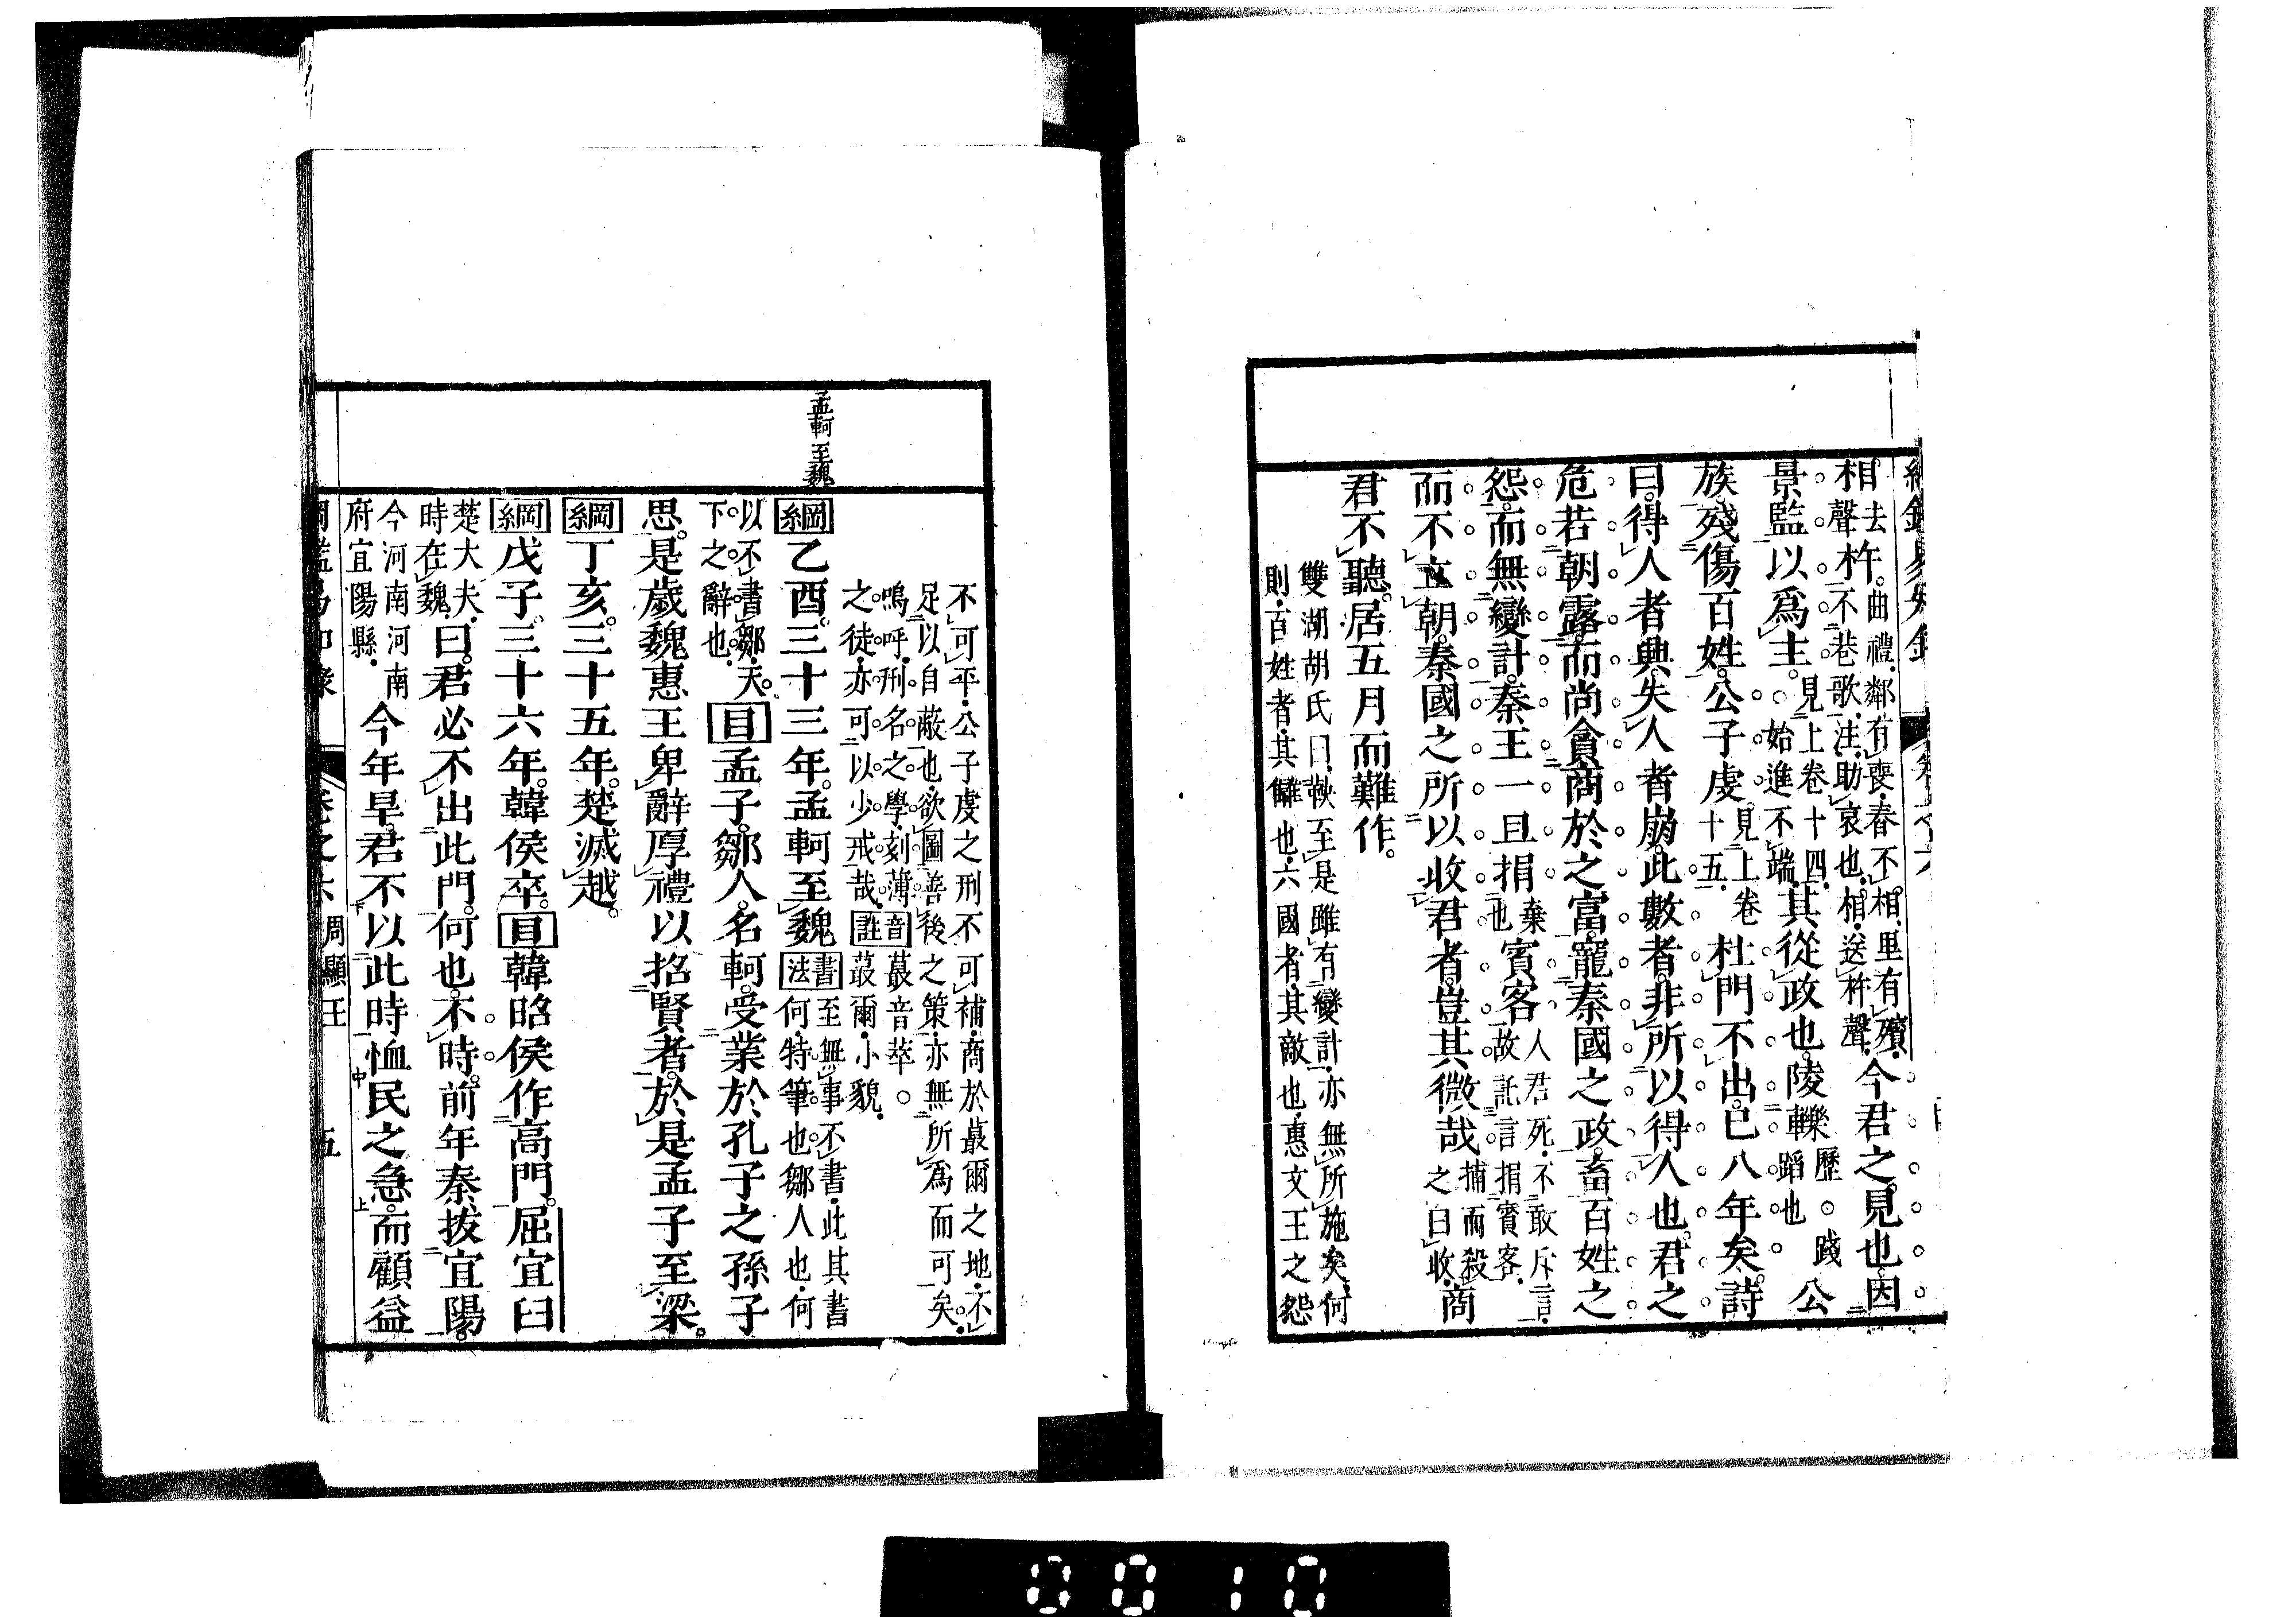 相去聲杵曲禮鄰有喪春不相里有殯
不巷歌注助哀也相送杵聲今君之見也因
景監以爲主見上卷十四始進不端其從政也陵轢歷踐蹈也公
族殘傷百姓公子虔見上卷十五杜門不出已八年矣詩
曰得人者興失人者崩此數者非所以得人也君之
危若朝露而尚貪商於之富寵秦國之政畜百姓之
怨而無變計秦王一旦捐棄也賓客人君死不敢斥言故託言捐賓客
而不立朝秦國之所以收君者豈其微哉捕而殺之曰收商
君不聽居五月而難作
雙湖胡氏曰鞅至是雖有變計亦無所施矣何
則百姓者其讎也六國者其敵也惠文王之怨
不可平公子虔之刑不可補商於蕞爾之地不
足以自蔽也欲圖善後之策亦無所爲而可矣
嗚呼刑名之學刻薄
之徒亦可以少戒哉音註蕞音萃○蕞爾小貌
孟軻至魏
綱乙酉三十三年孟軻至魏書法至無事不書此其書何特筆也鄒人也何
以不書鄒天下之辭也目孟子鄒人名軻受業於孔子之孫子
思是歲魏惠王卑辭厚禮以招賢者於是孟子至梁
綱丁亥三十五年楚滅越
綱戊子三十六年韓侯卒目韓昭侯作高門屈宜臼
楚大夫時在魏曰君必不出此門何也不時前年秦拔宜陽
今河南河南府宜陽縣今年旱君不以此時恤民之急而顧益
卷之六 周顯王 五
0010